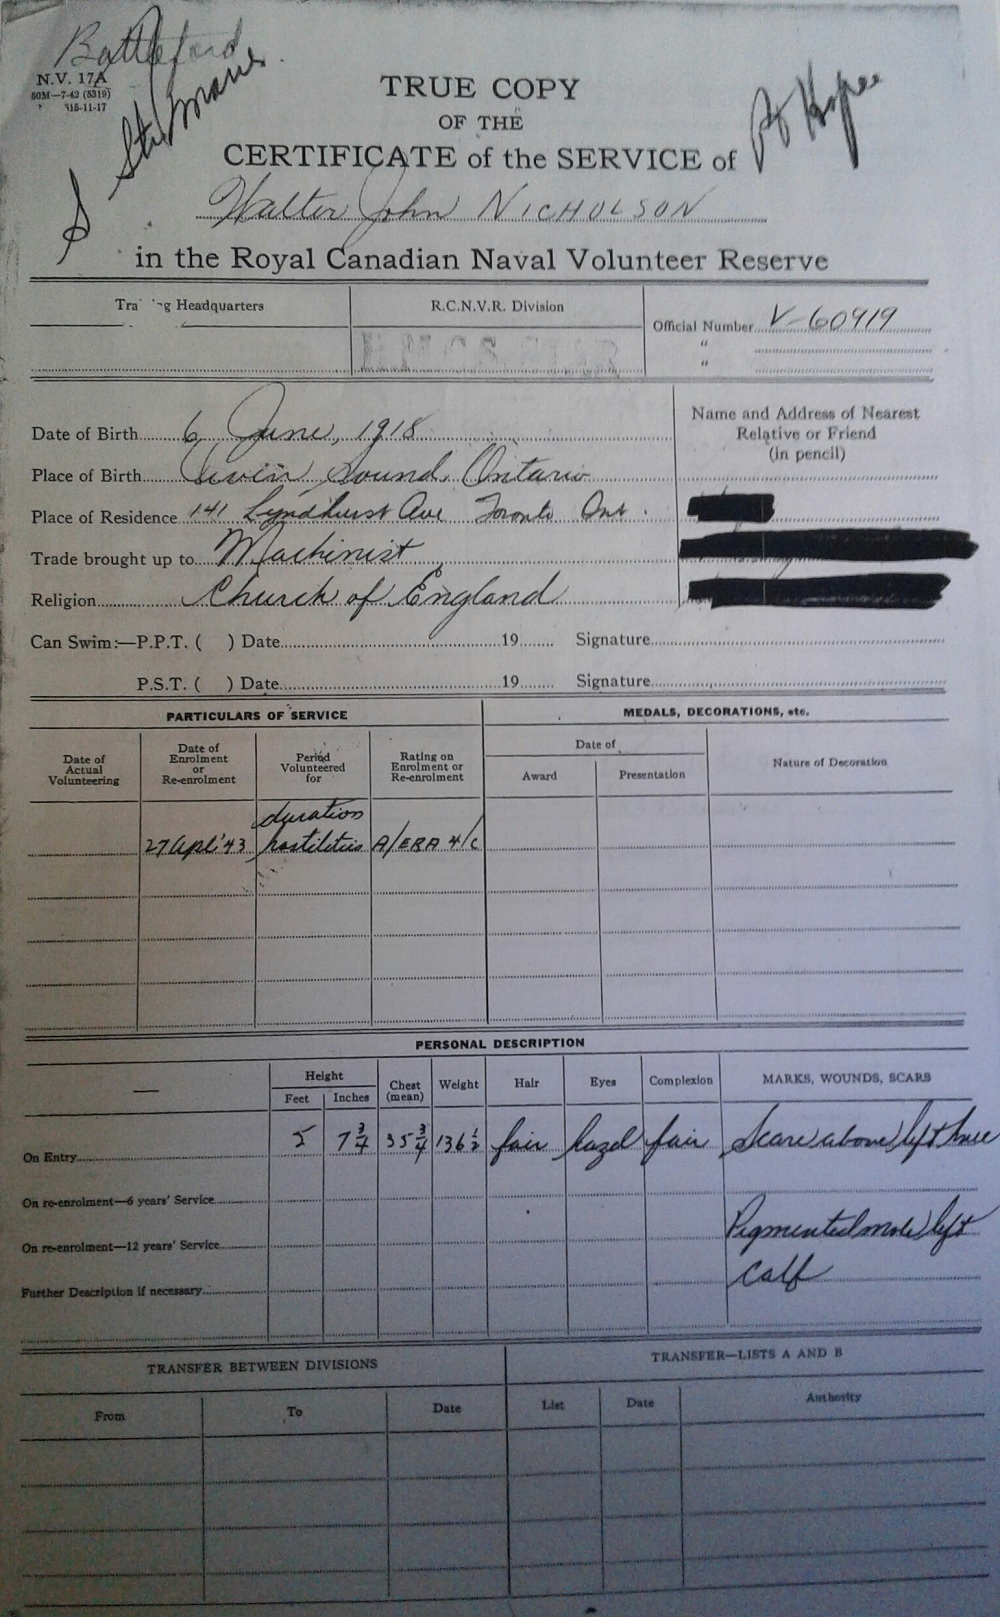 Battleford
N.V. 17A
50M—7-42 (5319)
Ste Marie
Pt Hope
TRUE COPY
OF THE
CERTIFICATE of the SERVICE of
Walter John NICHOLSON
in the Royal Canadian Naval Volunteer Reserve
Headquarters
R.C.N.V.R. Division
Official Number V-60919
"
"
H.M.C.S. STAR
Name and Address of Nearest
Relative or Friend
(in pencil)
Date of Birth 6 June, 1918
Place of Birth Owen Sound, Ontario
Place of Residence 141 Lyndhurst Ave Toronto Ont.
Trade brought up to Machinist
Religion Church of England
Can Swim:—P.P.T. ( ) Date 19 Signature
P.S.T. ( ) Date 19 Signature
PARTICULARS OF SERVICE
MEDALS, DECORATIONS, etc.
Date of Actual Volunteering
Date of Enrolment or Re-enrolment
Period Volunteered for
Rating on Enrolment or Re-enrolment
Date of
Award
Presentation
Nature of Decoration
duration
27 Apl '43 hostilities A/ERA 4/c
PERSONAL DESCRIPTION
Height
Feet
Inches
Chest (mean)
Weight
Hair
Eyes
Complexion
MARKS, WOUNDS, SCARS
On Entry 5 7 3/4 35 3/4 136 1/2 fair hazel fair Scare above left knee
On re-enrolment—6 years' Service
Pigmented mole left
On re-enrolment—12 years' Service
calf
Further Description if necessary
TRANSFER BETWEEN DIVISIONS
TRANSFER—LISTS A AND B
From
To
Date
List
Date
Authority